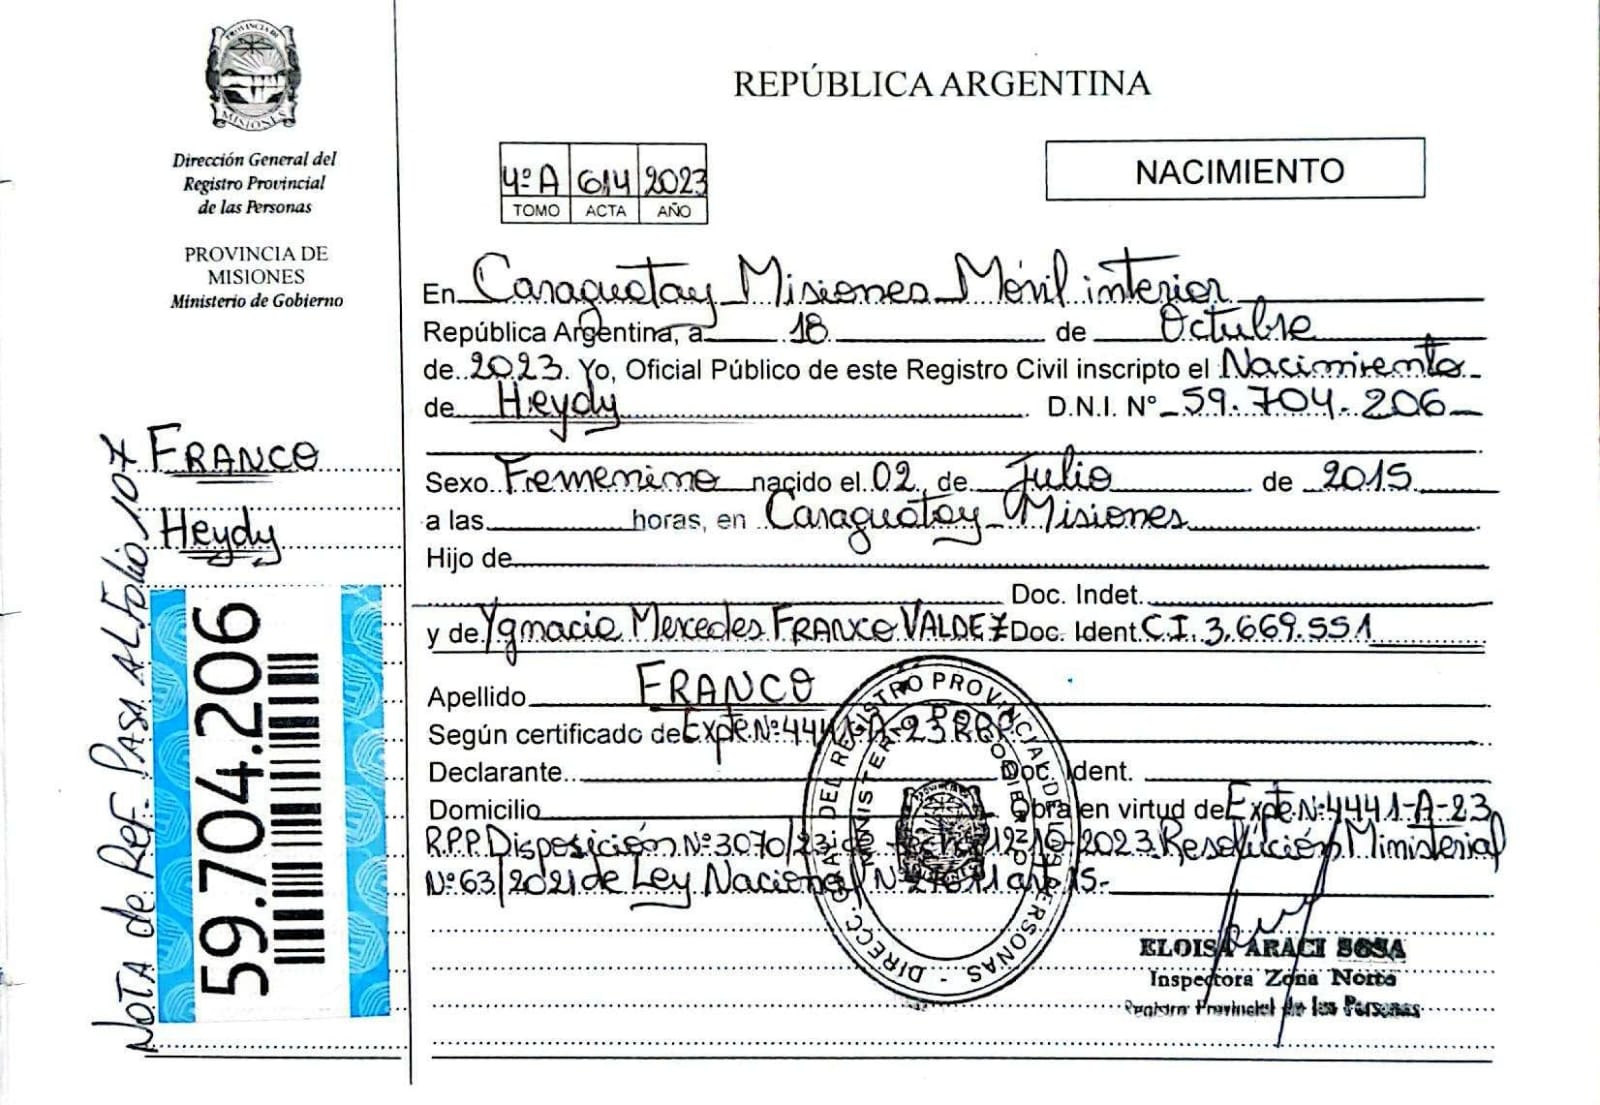 PROVINCIA DE
MISIONES
Dirección General del
Registro Provincial
de las Personas
PROVINCIA DE
MISIONES
Ministerio de Gobierno
FRANCO
Heydy
NOTA de REF. PASA AL Folio 107
59.704.206
REPÚBLICA ARGENTINA
4º A 614 2023
TOMO ACTA AÑO
NACIMIENTO
En Caraguatay Misiones Móvil interior
República Argentina, a 18 de Octubre
de 2023. Yo, Oficial Público de este Registro Civil inscripto el Nacimiento
de Heydy D.N.I. Nº 59.704.206
Sexo Femenino nacido el 02 de Julio de 2015
a las horas, en Caraguatay Misiones
Hijo de
Doc. Indet.
y de Ygnacia Mercedes FRANCO VALDEZ Doc. Ident C.I. 3.669.551
Apellido FRANCO
Según certificado de Expte Nº 4441-A-23 RPP
Declarante Doc. Ident.
Domicilio Obra en virtud de Expte Nº 4441-A-23
R.P.P. Disposición Nº 3070/23 de fecha 12-10-2023. Resolución Ministerial
Nº 63/2021 de Ley Nacional Nº art 15-
DIRECC. GRAL. DEL REGISTRO PROVINCIAL DE LAS PERSONAS
MINISTERIO DE GOBIERNO
ELOISA ARACI SOSA
Inspectora Zona Norte
Registro Provincial de las Personas